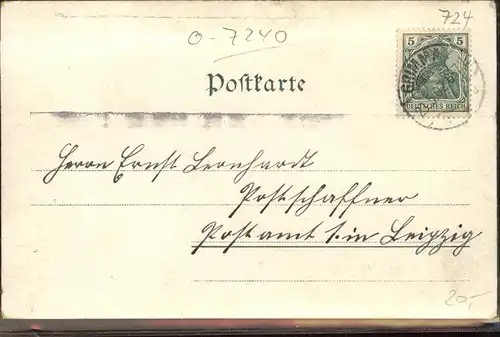 724
o-7240
5 5
DEUTSCHES REICH
Postkarte
Herrn Ernst Leonhardt
Postschaffner
Postamt 1. in Leipzig
20,-